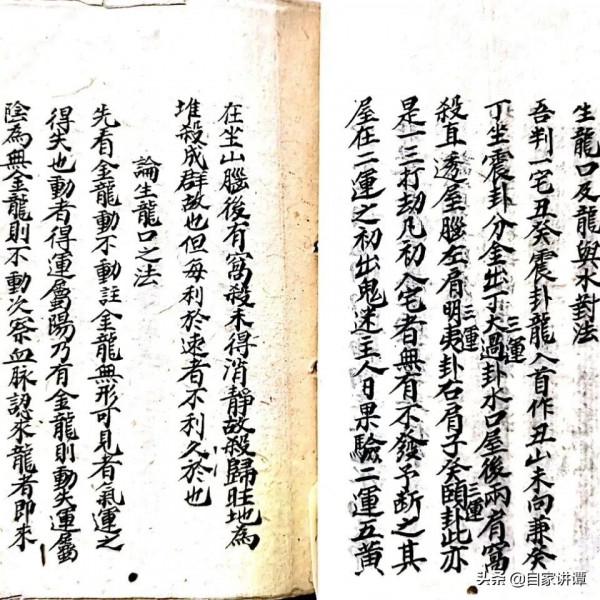 生龍口及龍與水對法
吾判一宅丑癸震卦龍入首作丑山未向兼癸
丁坐震卦分金出丁大過三運卦水口屋後兩有窩
殺直透屋腦左肩明夷三運卦右肩子癸頤三運卦此亦
是一三打劫凡初入宅者無有不發予斷之其
屋在二運之初出鬼迷主人曰果驗二運五黃
在坐山腦後有窩殺未得消靜故殺歸旺地為
堆殺成群故也但每利於速者不利久於也
論生龍口之法
先看金龍動不動註金龍無形可見者氣運之
得失也動者得運屬陽乃有金龍則動失運屬
陰為無金龍則不動次察血脈認來龍者即來
头条 @自家讲谭